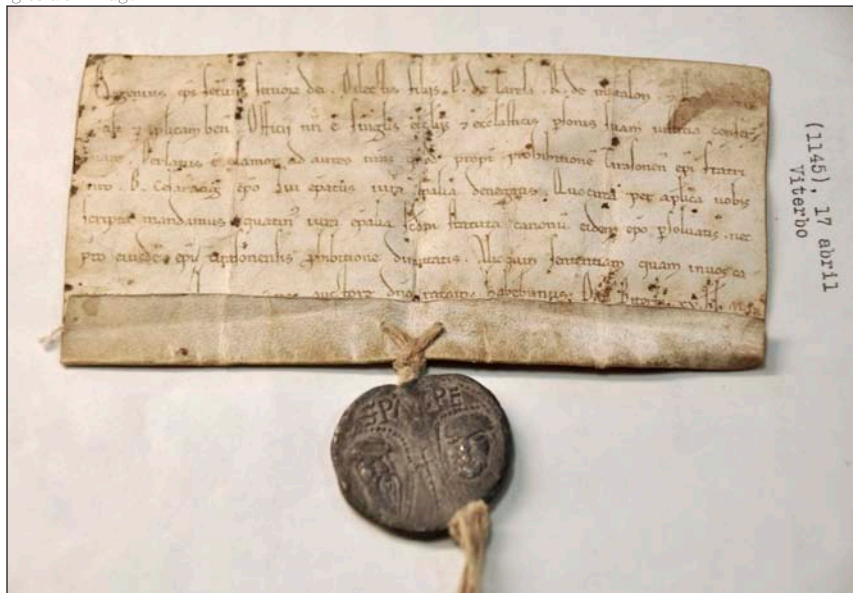 Eugenius eps seruus seruor dei. Dilectis filiis. P. de R. de
& aplicam ben. Officii nri e singlis eccliis & ecclasticis psonis suam iusticia conser
uare. Perlatus e clamor ad aures nras quod propt prohibitione tirasonen epi fratri
nro. B. Cesaraug epo sui epatus iura epalia denegetis. Quocirca per aplica uobis
scripta mandamus quatin iura epalia scdm statuta canonu eidem epo psoluatis. nec
pro eiusde epi tirasonensis phibitione dimittatis. Alioquin sententiam quam in uos ca
auctore dno ratam habebimus. Dat Viterb. xv. kl.
SPA SPE
(1145), 17 abril
Viterbo